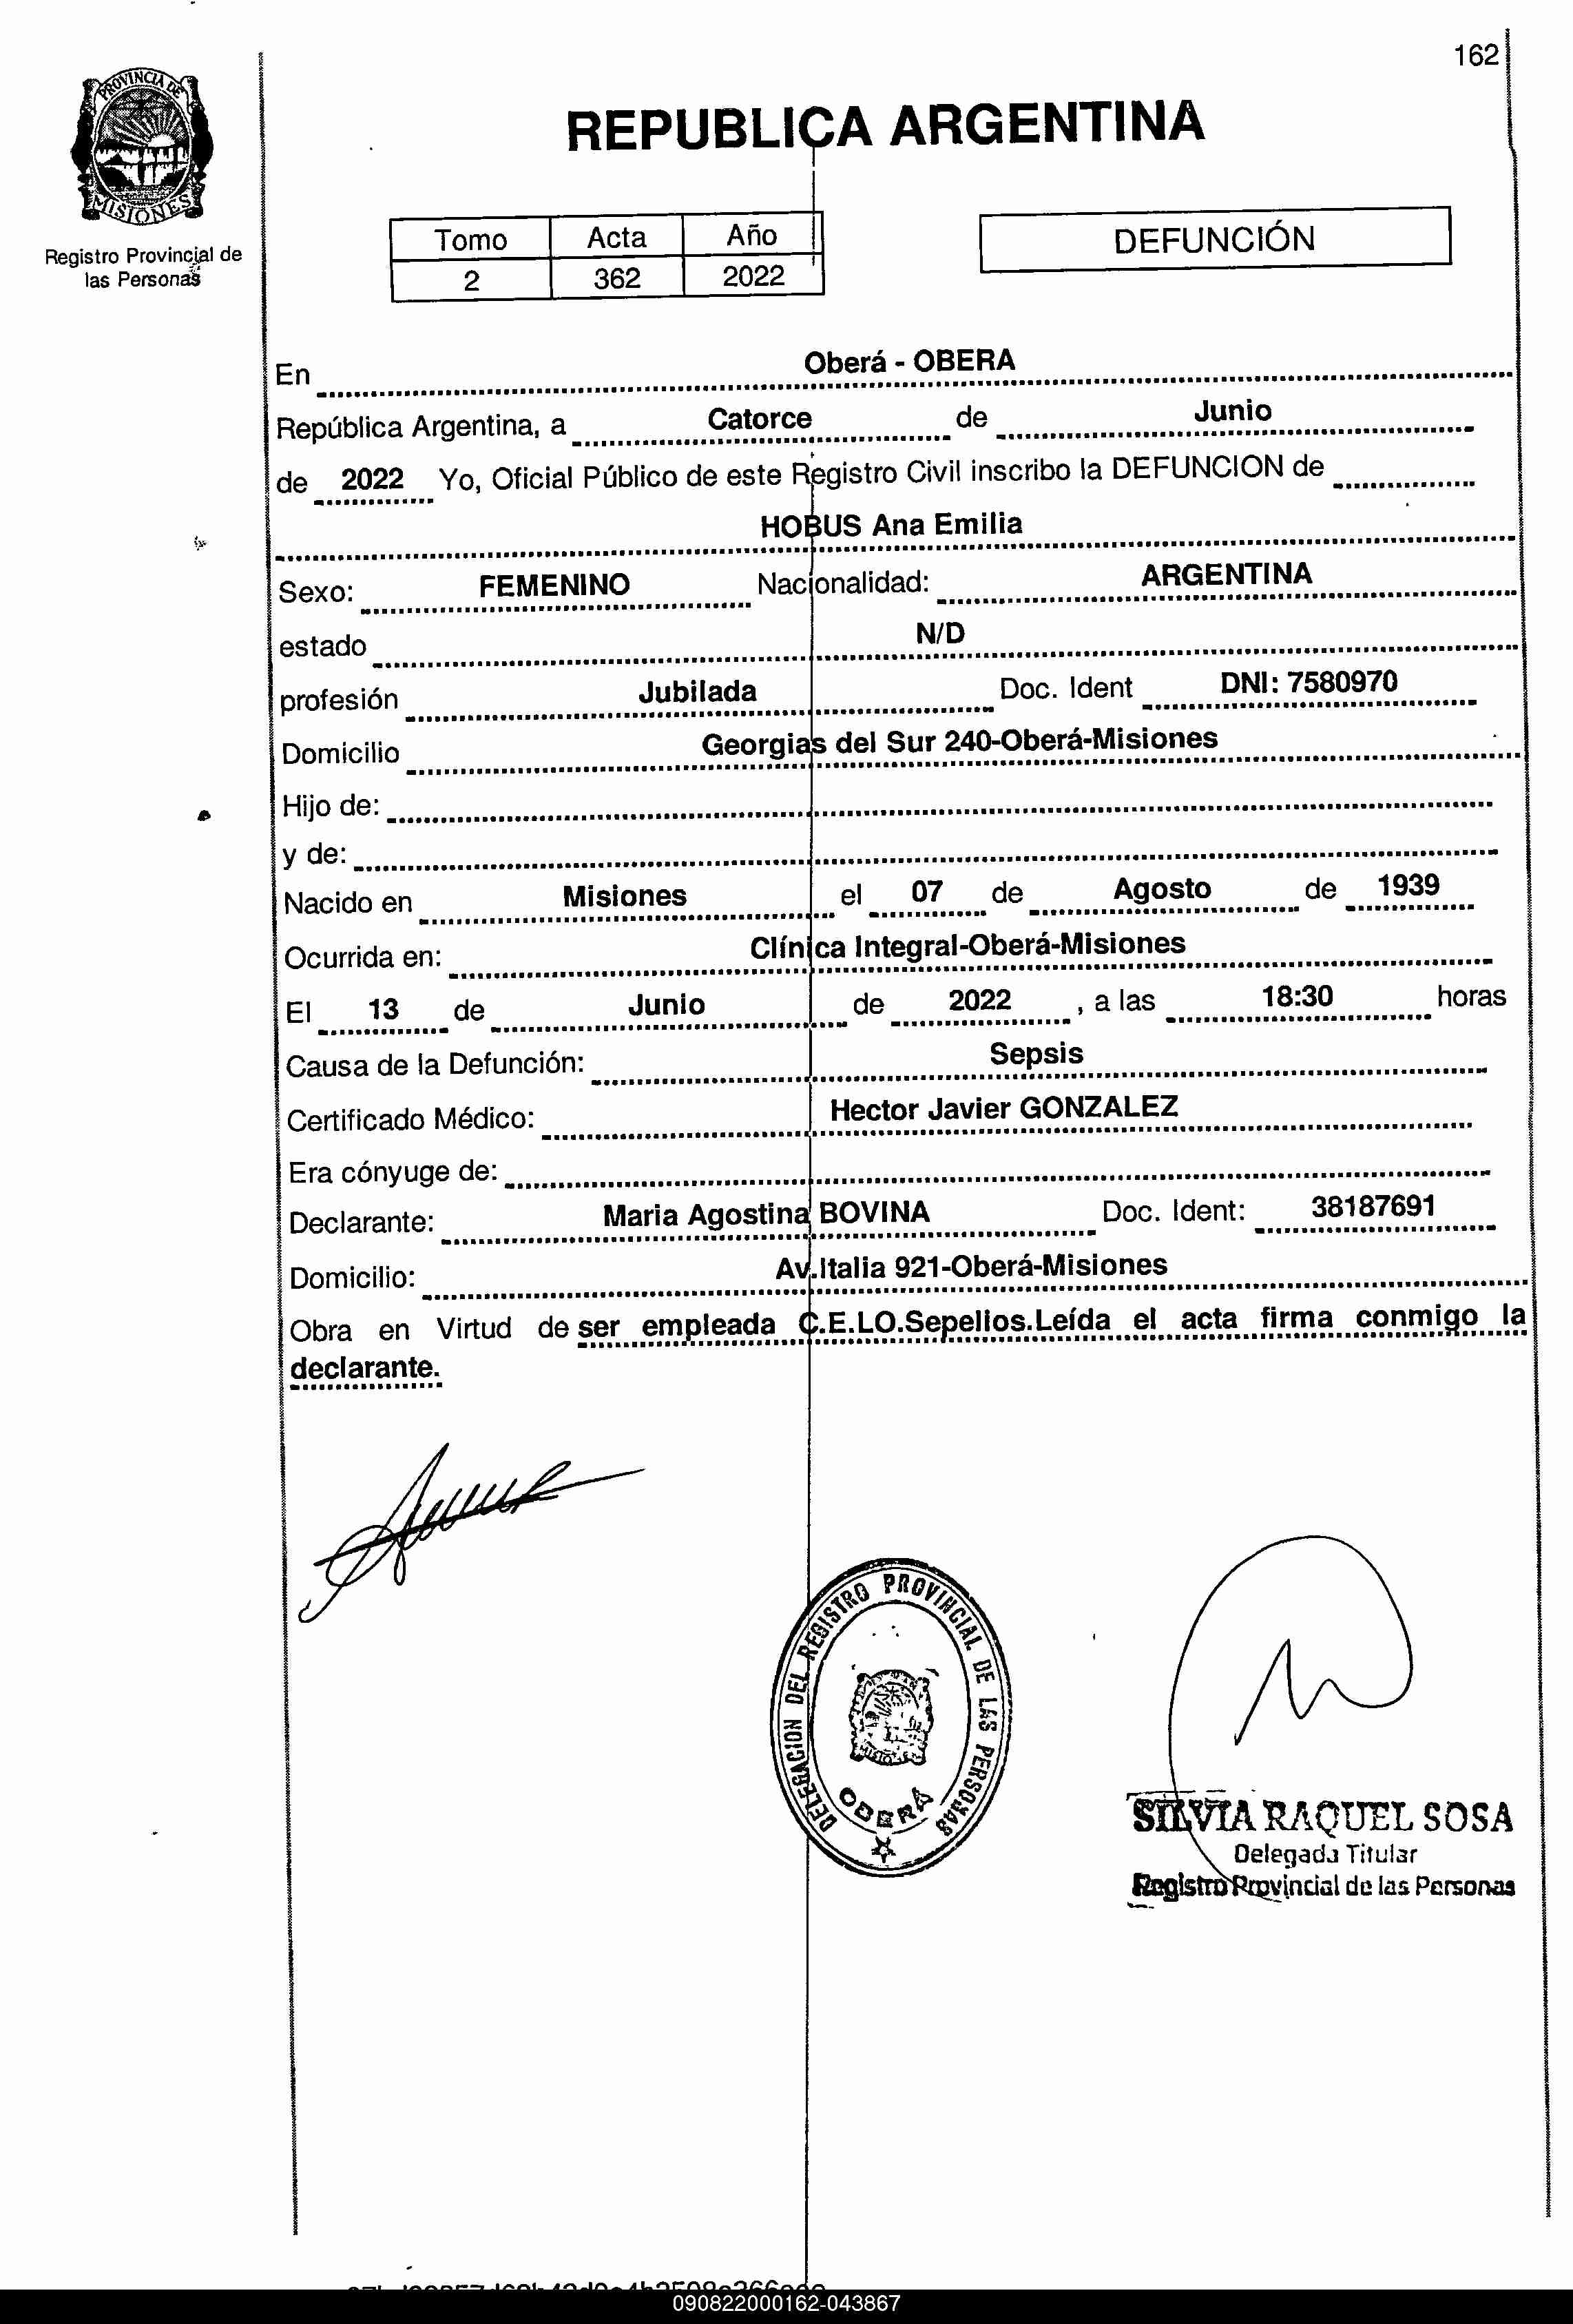 162
PROVINCIA DE
MISIONES
Registro Provincial de
las Personas
REPUBLICA ARGENTINA
Tomo Acta Año
2 362 2022
DEFUNCIÓN
En Oberá - OBERA
República Argentina, a Catorce de Junio
de 2022 Yo, Oficial Público de este Registro Civil inscribo la DEFUNCION de
HOBUS Ana Emilia
Sexo: FEMENINO Nacionalidad: ARGENTINA
estado N/D
profesión Jubilada Doc. Ident DNI: 7580970
Domicilio Georgias del Sur 240-Oberá-Misiones
Hijo de:
y de:
Nacido en Misiones el 07 de Agosto de 1939
Ocurrida en: Clínica Integral-Oberá-Misiones
El 13 de Junio de 2022 , a las 18:30 horas
Causa de la Defunción: Sepsis
Certificado Médico: Hector Javier GONZALEZ
Era cónyuge de:
Declarante: Maria Agostina BOVINA Doc. Ident: 38187691
Domicilio: Av.Italia 921-Oberá-Misiones
Obra en Virtud de ser empleada C.E.LO.Sepelios.Leída el acta firma conmigo la
declarante.
DELEGACION DEL REGISTRO PROVINCIAL DE LAS PERSONAS
OBERÁ
SILVIA RAQUEL SOSA
Delegada Titular
Registro Provincial de las Personas
090822000162-043867